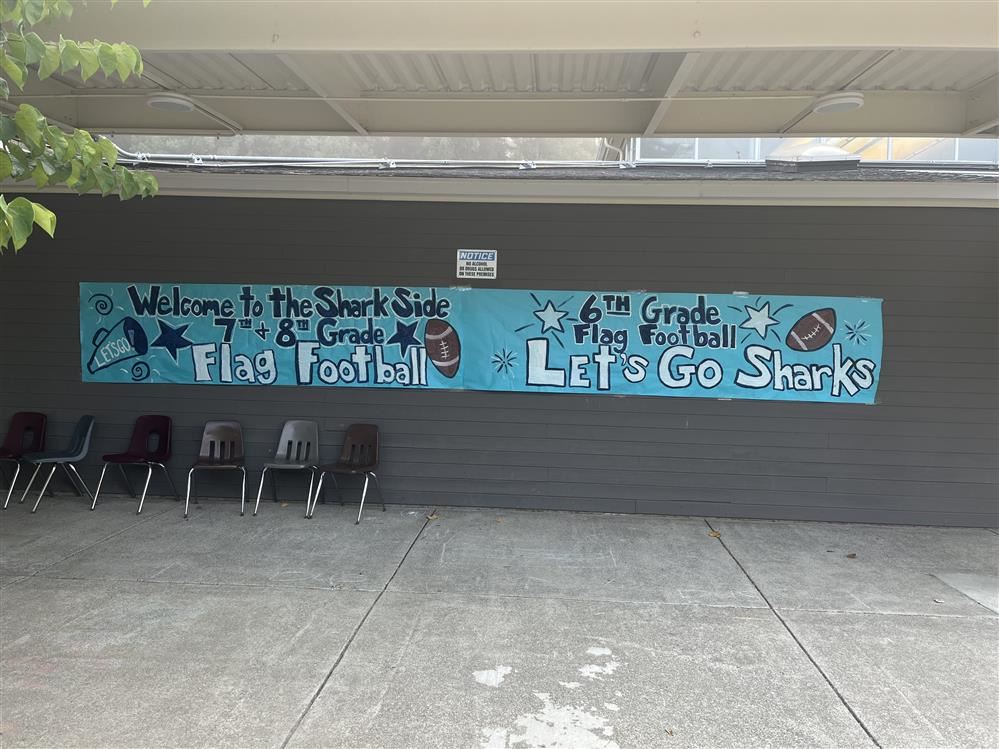 NOTICE
NO ALCOHOL
OR DRUGS ALLOWED
ON THESE PREMISES
Welcome to the Shark Side
7TH + 8TH Grade
Flag Football
LET'S GO!
6TH Grade
Flag Football
LET'S GO Sharks